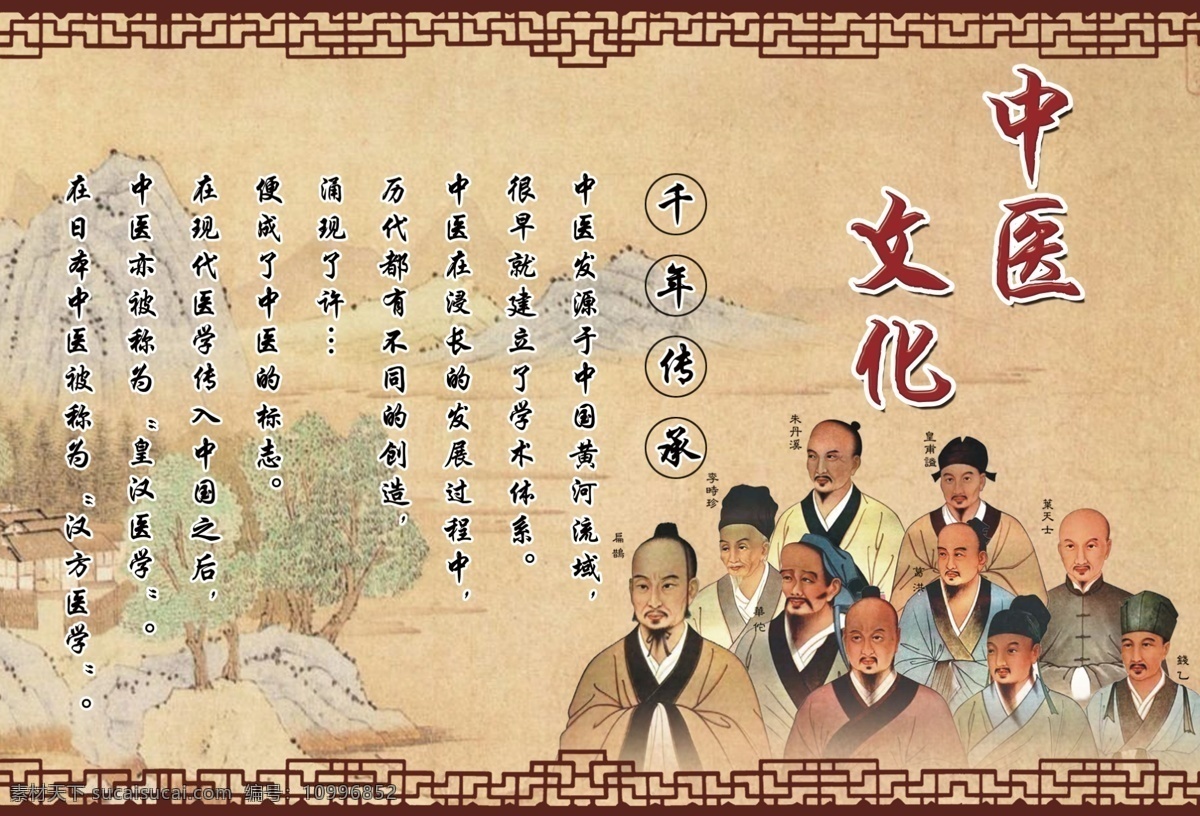 中医
文化
千年传承
中医发源于中国黄河流域，
很早就建立了学术体系。
中医在浸长的发展过程中，
历代都有不同的创造，
涌现了许…
便成了中医的标志。
在现代医学传入中国之后，
中医亦被称为“皇汉医学”。
在日本中医被称为“汉方医学”。
朱丹溪
皇甫謐
李時珍
葉天士
扁鵲
葛洪
華佗
錢乙
素材天下 sucaisucai.com 编号：10996852